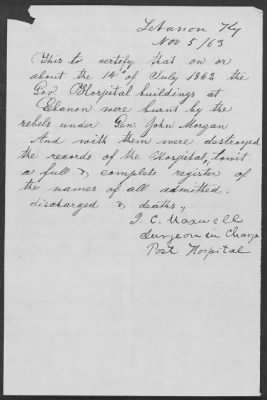 Lebanon Ky
Nov 5/63
This to certify that on or
about the 12" of July 1862 the
Gov Hospital buildings at
Lebanon were burnt by the
rebels under Gen. John Morgan
And with them were destroyed
the records of the Hospital, towit
a full & complete register of
the names of all admitted.
discharged & deaths,
J. C. Maxwell
Surgeon in Charge
Post Hospital